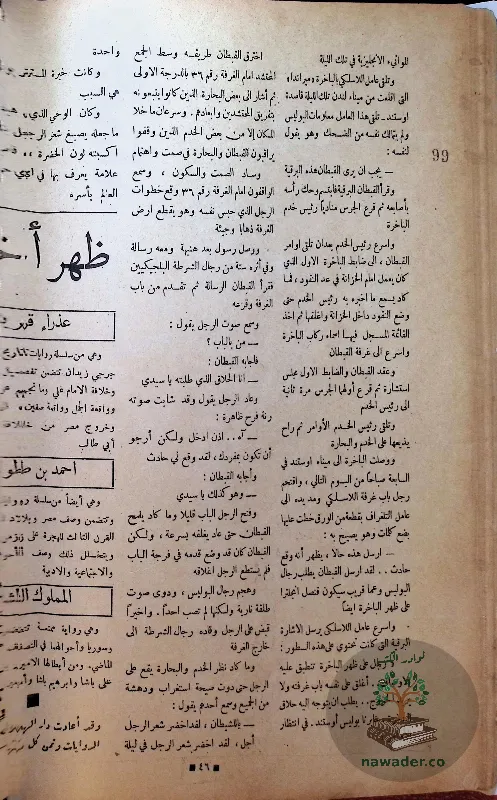 الموانىء الانجليزية في تلك الليلة
وتلقى عامل اللاسلكي بالباخرة وميراندا،
التي اقلعت من ميناء لندن تلك الليلة قاصدة
اوستند. تلقى هذا العامل معلومات البوليس
ولم يتمالك نفسه من الضحك وهو يقول
لنفسه :
— يجب ان يرى القبطان هذه البرقية
وقرأ القبطان البرقية فابتسم وحك رأسه
بأصابعه ثم قرع الجرس منادياً رئيس خدم
الباخرة
واسرع رئيس الخدم بعد ان تلقى اوامر
القبطان ، الى ضابط الباخرة الاول الذي
كان يعمل امام الخزانة في عد النقود ، فما
كاد يسمع ما اخبره به رئيس الخدم حتى
وضع النقود داخل الخزانة واغلقها ثم اخذ
القائمة المسجل فيها اسماء ركاب الباخرة
واسرع الى غرفة القبطان
وعقد القبطان والضابط الاول مجلس
استشارة ثم قرع أولهما الجرس مرة ثانية
الى رئيس الخدم
وتلقى رئيس الخدم الأوامر ثم راح
يذيعها على الخدم والبحارة
ووصلت الباخرة الى ميناء اوستند في
السابعة صباحاً من اليوم التالي ، وافتتح
رجل باب غرفة اللاسلكي ومد يده الى
عامل التلغراف بقطعة من الورق خطت عليها
بضع كلمات وهو يصيح به :
— ارسل هذه حالا ، يظهر أنه وقع
حادث .. لقد ارسل القبطان يطلب رجال
البوليس وعما قريب سيكون قنصل انجلترا
على ظهر الباخرة ايضاً
واسرع عامل اللاسلكي يرسل الاشارة
البرقية التي كانت تحتوي على هذه السطور :
رجل على ظهر الباخرة تنطبق عليه
أغلق على نفسه باب غرفته ولا
يطلب ان يتوجه اليه حلاق
بوليس اوستند . في انتظار
اخترق القبطان طريقه وسط الجمع
المحتشد امام الغرفة رقم ٣٦ بالدرجة الاولى
ثم أشار الى بعض البحارة الذين كانوا يتبعونه
بتفريق المحتشدين وابعادهم . وسرعان ما خلا
المكان إلا من بعض الخدم الذين وقفوا
يراقبون القبطان والبحارة في صمت واهتمام
وساد الصمت والسكون ، وسمع
الواقفون امام الغرفة رقم ٣٦ وقع خطوات
الرجل الذي حبس نفسه وهو يقطع ارض
الغرفة ذهاباً وجيئة
ووصل رسول بعد هنيهة ومعه رسالة
وفي أثره ستة من رجال الشرطة البلجيكيين
فقرأ القبطان الرسالة ثم تقدم من باب
الغرفة وقرعه
وسمع صوت الرجل يقول :
— من بالباب ؟
فاجابه القبطان :
— انا الحلاق الذي طلبته يا سيدي
وعاد الرجل يقول وقد شابت صوته
رنة فرح ظاهرة :
— آه .. اذن ادخل ولكن أرجو
أن تكون بمفردك ، لقد وقع لي حادث
وأجابه القبطان :
— وهو كذلك يا سيدي
وفتح الرجل الباب قليلا وما كاد يلمح
القبطان حتى عاد يغلقه بسرعة ، ولكن
القبطان كان قد وضع قدمه في فرجة الباب
فلم يستطع الرجل اغلاقه
وهجم رجال البوليس ، ودوى صوت
طلقة نارية ولكنها لم تصب احداً . واخيراً
قبض على الرجل وقاده رجال الشرطة الى
خارج الغرفة
وما كاد نظر الخدم والبحارة يقع على
الرجل حتى دوت صيحة استغراب ودهشة
من الجميع وصاح أحدهم يقول :
— يا للشيطان ، لقد اخضر شعر الرجل
أجل ، لقد اخضر شعر الرجل في ليلة
واحدة
وكانت خبرة المستر
هي السبب
وكان الوحي الذي
ما جعله يصبغ شعر الرجل
اكسبته لون الخضرة ،
علامة يعرف بها في أي
العالم بأسره
ظهر أ
عذراء قر
وهي من سلسلة روايات تاريخ
جرجي زيدان تتضمن تفصيل
وخلافة الامام علي وما نجم عن
وواقعة الجمل وواقعة صفين
وخروج مصر من خلافة
أبي طالب
احمد بن طولو
وهي أيضاً من سلسلة روا
وتتضمن وصف مصر وبلاد
القرن الثالث للهجرة على زمن
ويتخلل ذلك وصف الأحو
والاجتماعية والادبية
المملوك الشار
وهي رواية ممتعة تتضمن
وسوريا وأحوالهما في النصف
الماضي . ومن أبطالها الامير
علي باشا وابرهيم باشا وأمين
وقد أعادت دار الهلال
الروايات وثمن كل
٤٦
99
نوادر الكتب
nawader.co